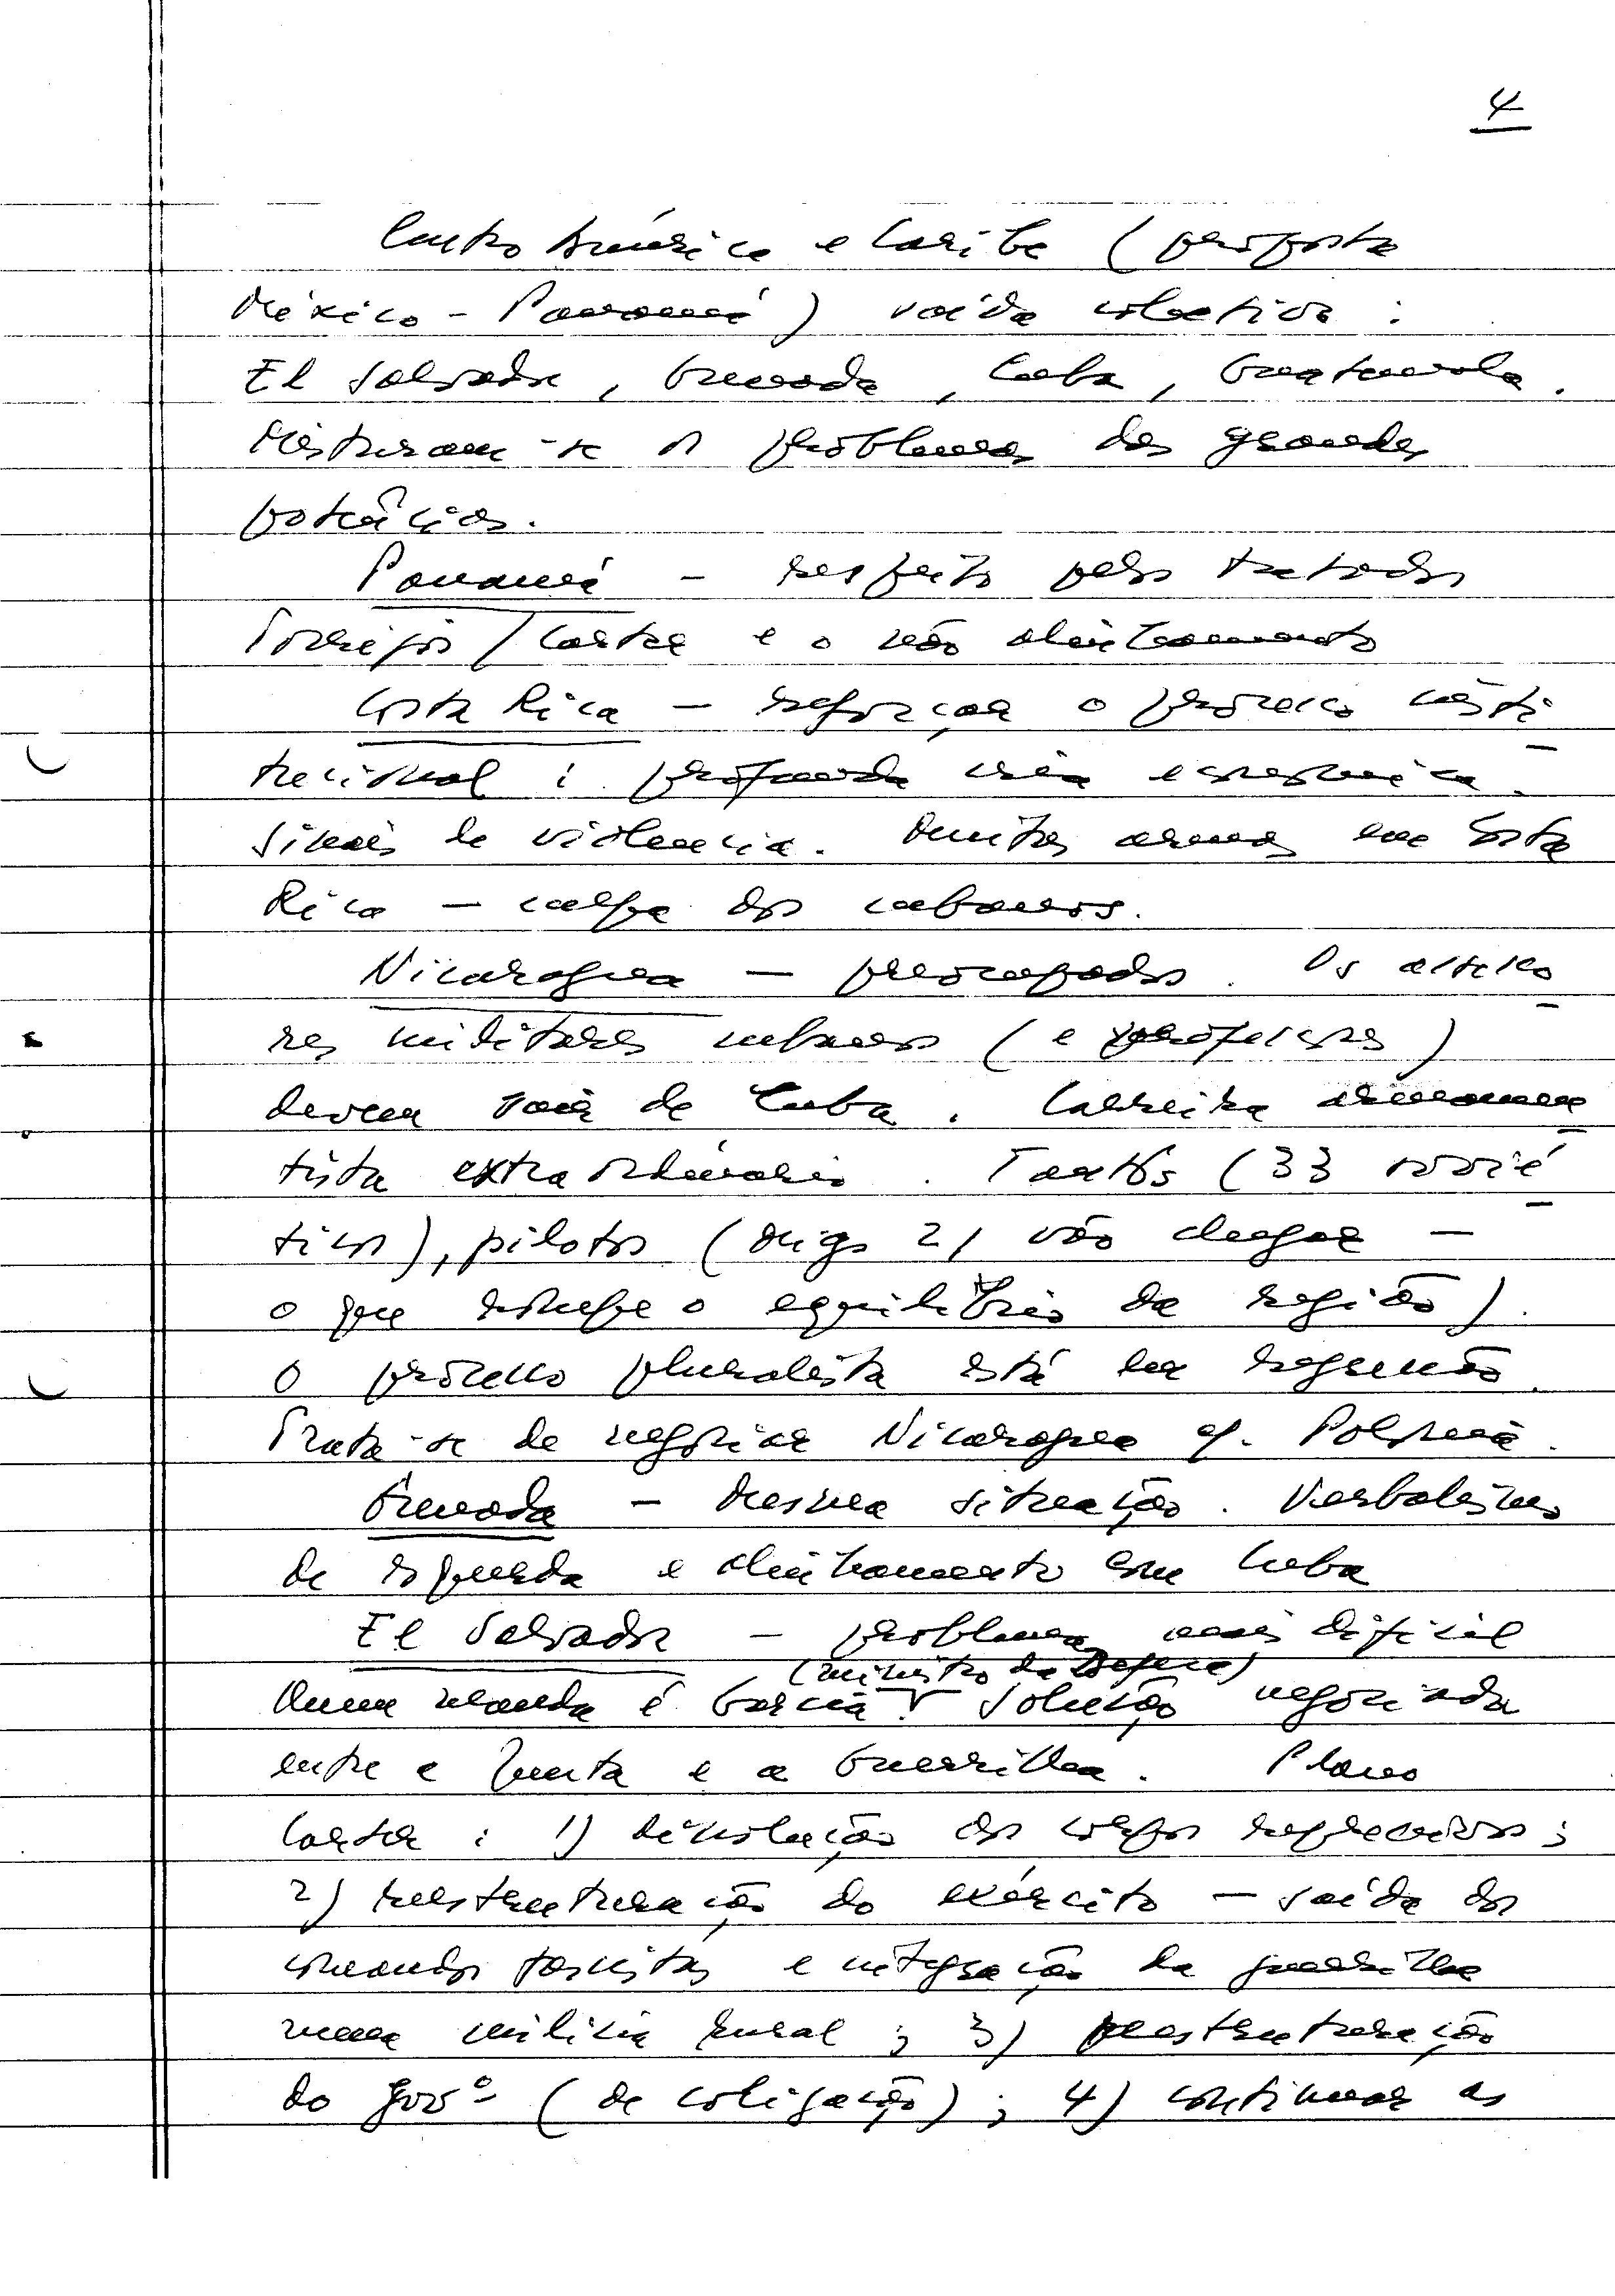 4
Centro América e Caribe (proposta
México - Panamá) saída colectiva :
El Salvador, Grenada, Cuba, Guatemala.
Misturam-se os problemas das grandes
potências.
Panamá - respeito pelos tratados
Torrijos/Carter e o não alinhamento
Costa Rica - reforçar o processo consti-
tucional ; profunda crise económica.
Sinais de violencia. Muitas armas em Costa
Rica - culpa dos cubanos.
Nicaragua - preocupados. Os assesso-
res militares cubanos (e professores)
devem sair de Cuba. Carreira armamen-
tista extraordinária. Tanks (33 sovié-
ticos), pilotos (migs 21 vão chegar -
o que rompe o equilíbrio da região).
O processo pluralista está em regressão.
Trata-se de negociar Nicaragua cf. Polonia.
Grenada - mesma situação. Verbalismo
de esquerda e alinhamento com Cuba
El Salvador - problema mais dificil
(ministro da Defesa)
Quem manda é Garcia. Solução negociada
entre a Junta e a Guerrilla. Plano
Carter : 1) dissolução dos corpos repressivos ;
2) reestructuração do exército - saída dos
comandos fascistas e integração da guerrilla
numa milicia rural ; 3) reestructuração
do govº (de coligação) ; 4) continuar as